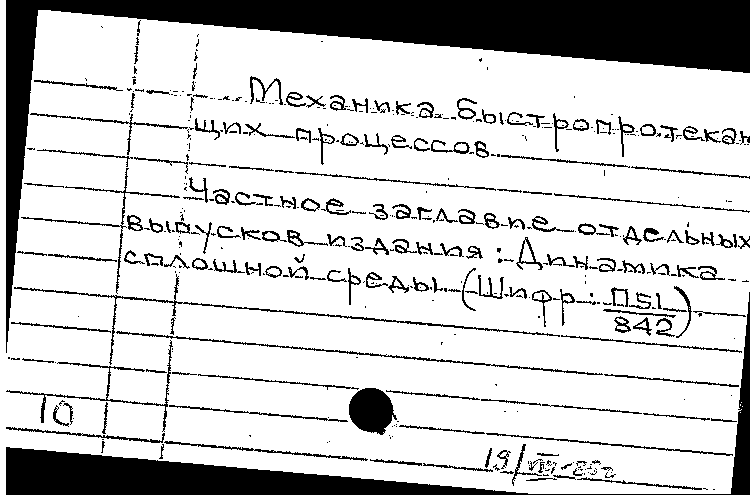 Механика быстропротекаю
щих процессов
Частное заглавие отдельных
выпусков издания: Динамика
сплошной среды (Шифр: П51
842).
10
19/VII-85г